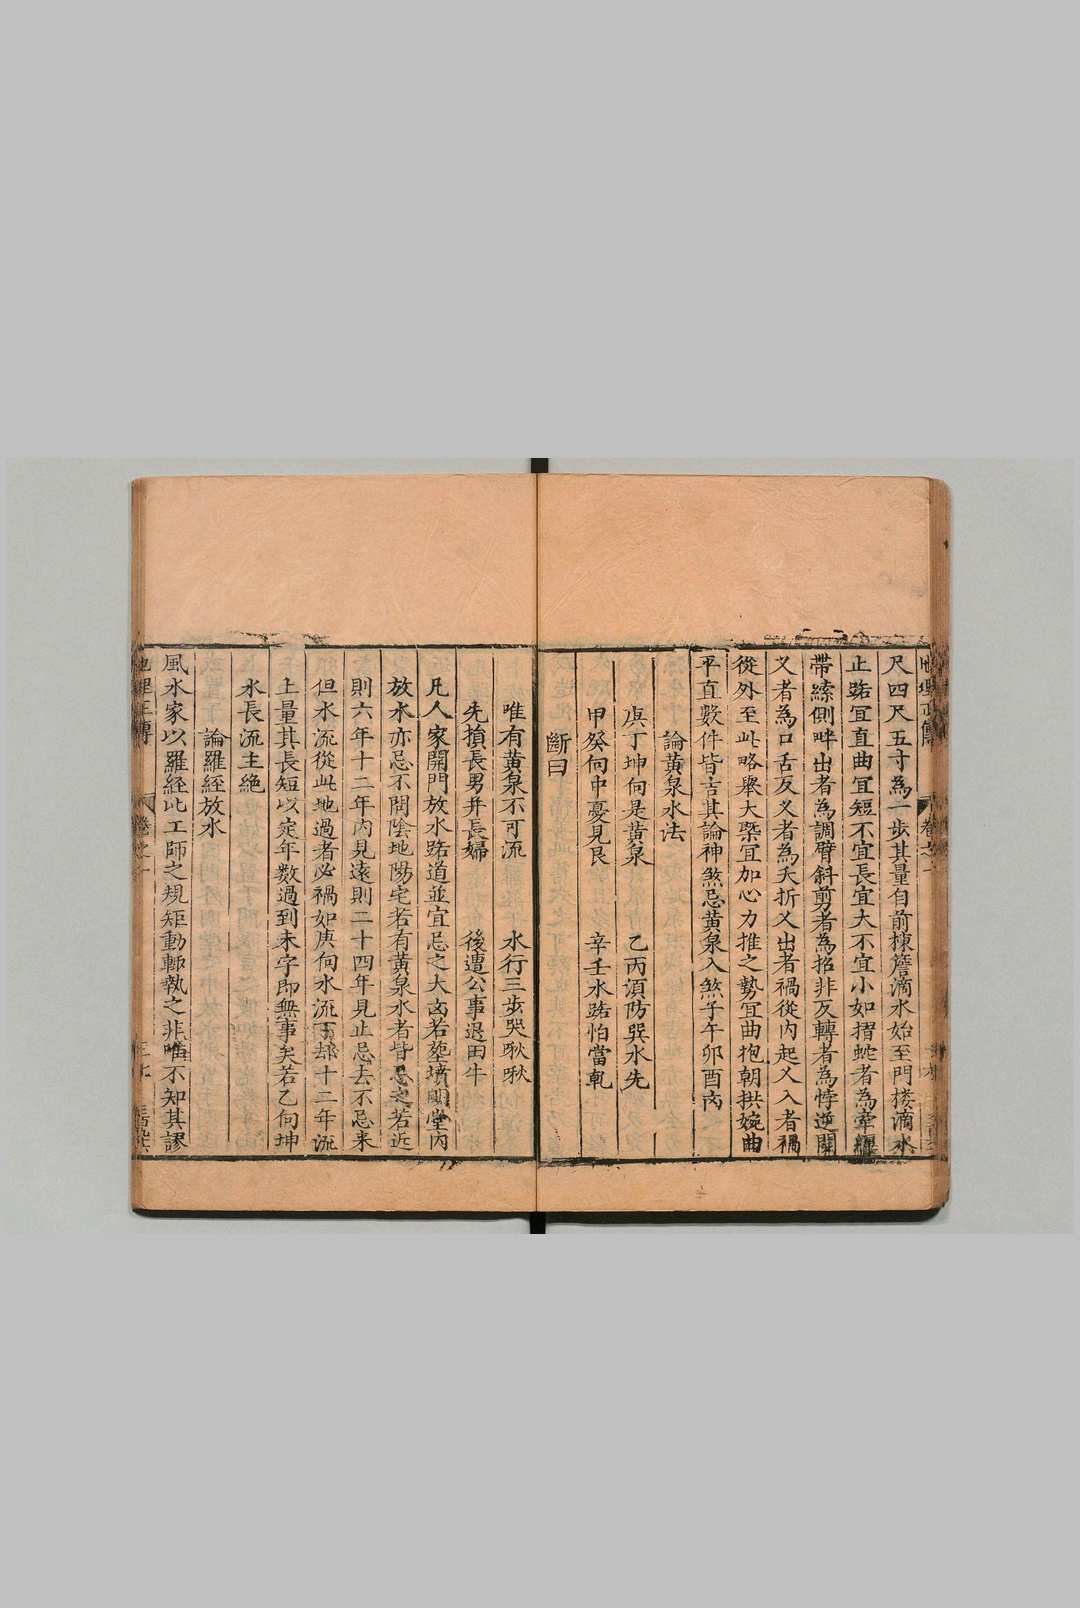 尺四尺五寸為一步其量自前棟簷滴水始至門楼滴水
止踏宜直曲宜短不宜長宜大不宜小如摺蛇者為牽纒
帶綠側畔出者為調臂斜剪者為招非反轉者為悖逆関
叉者為口舌反义者為夭折义出者禍從內起义入者禍
從外至此略舉大槩宜加心力推之勢冝曲抱朝拱婉曲
平直數件皆吉其論神煞忌黄泉入煞子午卯酉內
論黄泉水法
庚丁坤向是黄泉 乙丙湏防巽水先
甲癸向中憂見艮 辛壬水路怕當乹
斷曰
唯有黄泉不可流 水行三步哭啾啾
先損長男并長婦 後遭公事退田牛
凡人家開門放水路道並宜忌之大凶若塟墳明堂內
放水亦忌不問陰地陽宅若有黄泉水者皆忌之若近
則六年十二年內見遠則二十四年見止忌去不忌来
但水流從此地過者必禍如庚向水流丁却十二年流
上量其長短以定年數過到未字即無事矣若乙向坤
水長流主絶
論羅經放水
風水家以羅経此工師之規矩動輙執之非惟不知其謬
地理正傳
卷之一